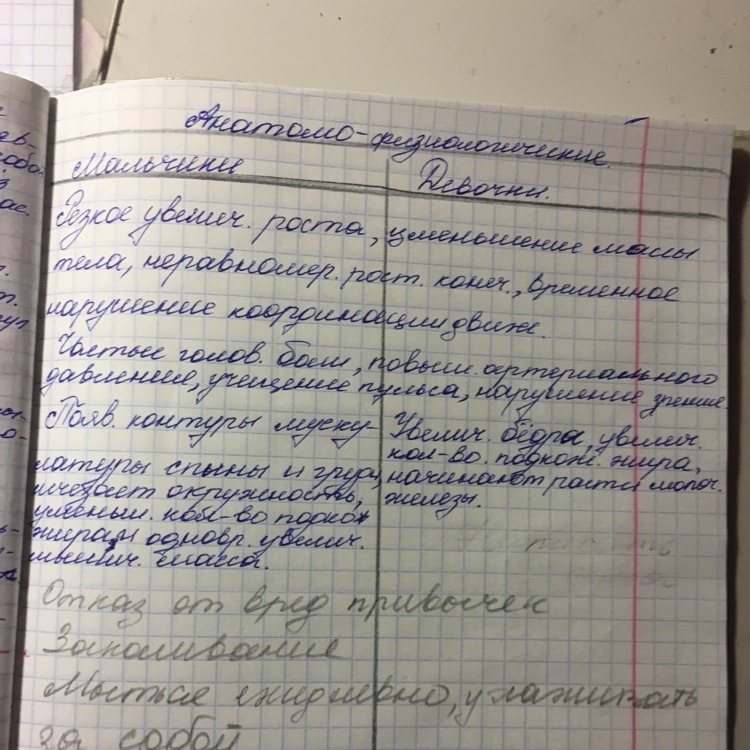 Анатомо-физиологические.
Мальчики
Девочки.
Резкое увелич. роста, уменьшение массы
тела, неравномер. рост. конеч., временное
нарушение координации движ.
Частые голов. боли, повыш. артериального
давление, учищение пульса, нарушение зрение.
Появ. контуры муску-
латуры спины и груди,
исчезает окружность,
уменьш. кол-во подкож
жира и одновр. увелич.
мышеч. масса.
Увелич. бёдра, увелич.
кол-во. подкож. жира,
начинают расти молоч.
железы.
Отказ от вред привычек
Закаливание
Мыться ежедневно, ухаживать
за собой